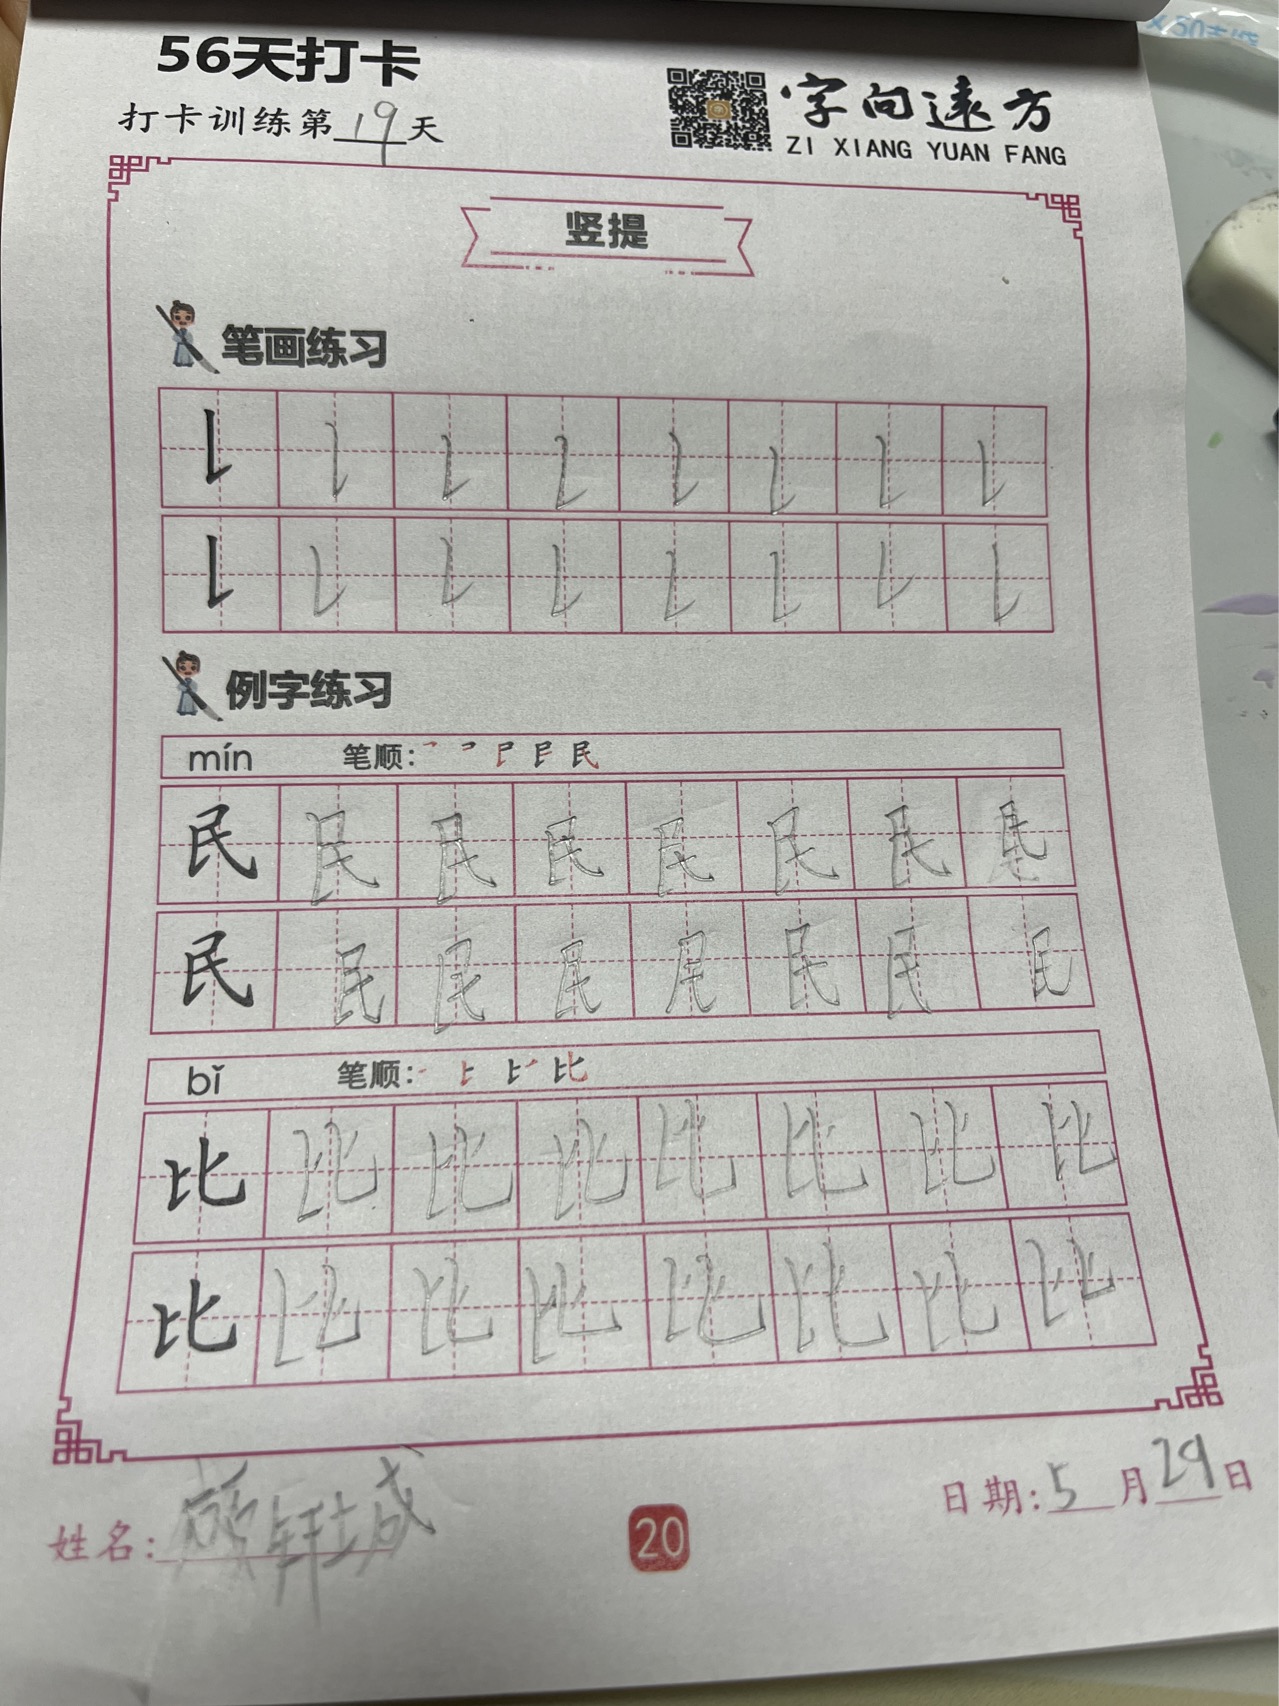 56天打卡
打卡训练第19天
字向远方
ZI XIANG YUAN FANG
竖提
笔画练习
例字练习
mín 笔顺：
民 民 民 民 民 民 民 民
民 民 民 民 民 民 民 民
bǐ 笔顺： 比
比 比 比 比 比 比 比 比
比 比 比 比 比 比 比 比
姓名：
日期：5月29日
20